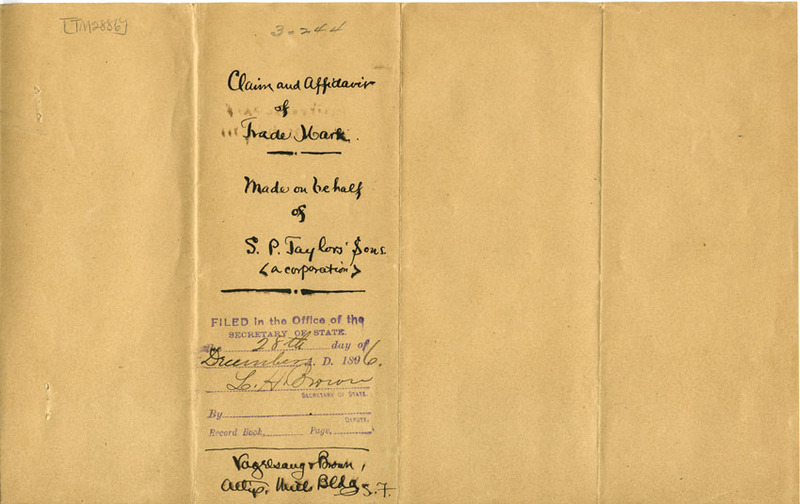 [TM2886]
3-244
Claim and Affidavit
of
Trade Mark.
Made on behalf
of
S. P. Taylors' Sons
<a corporation>
FILED in the Office of the
SECRETARY OF STATE.
the 28th day of
December A. D. 1896.
L. H. Brown
SECRETARY OF STATE.
By
DEPUTY.
Record Book Page
& Brown,
Attys, Bldg S.F.